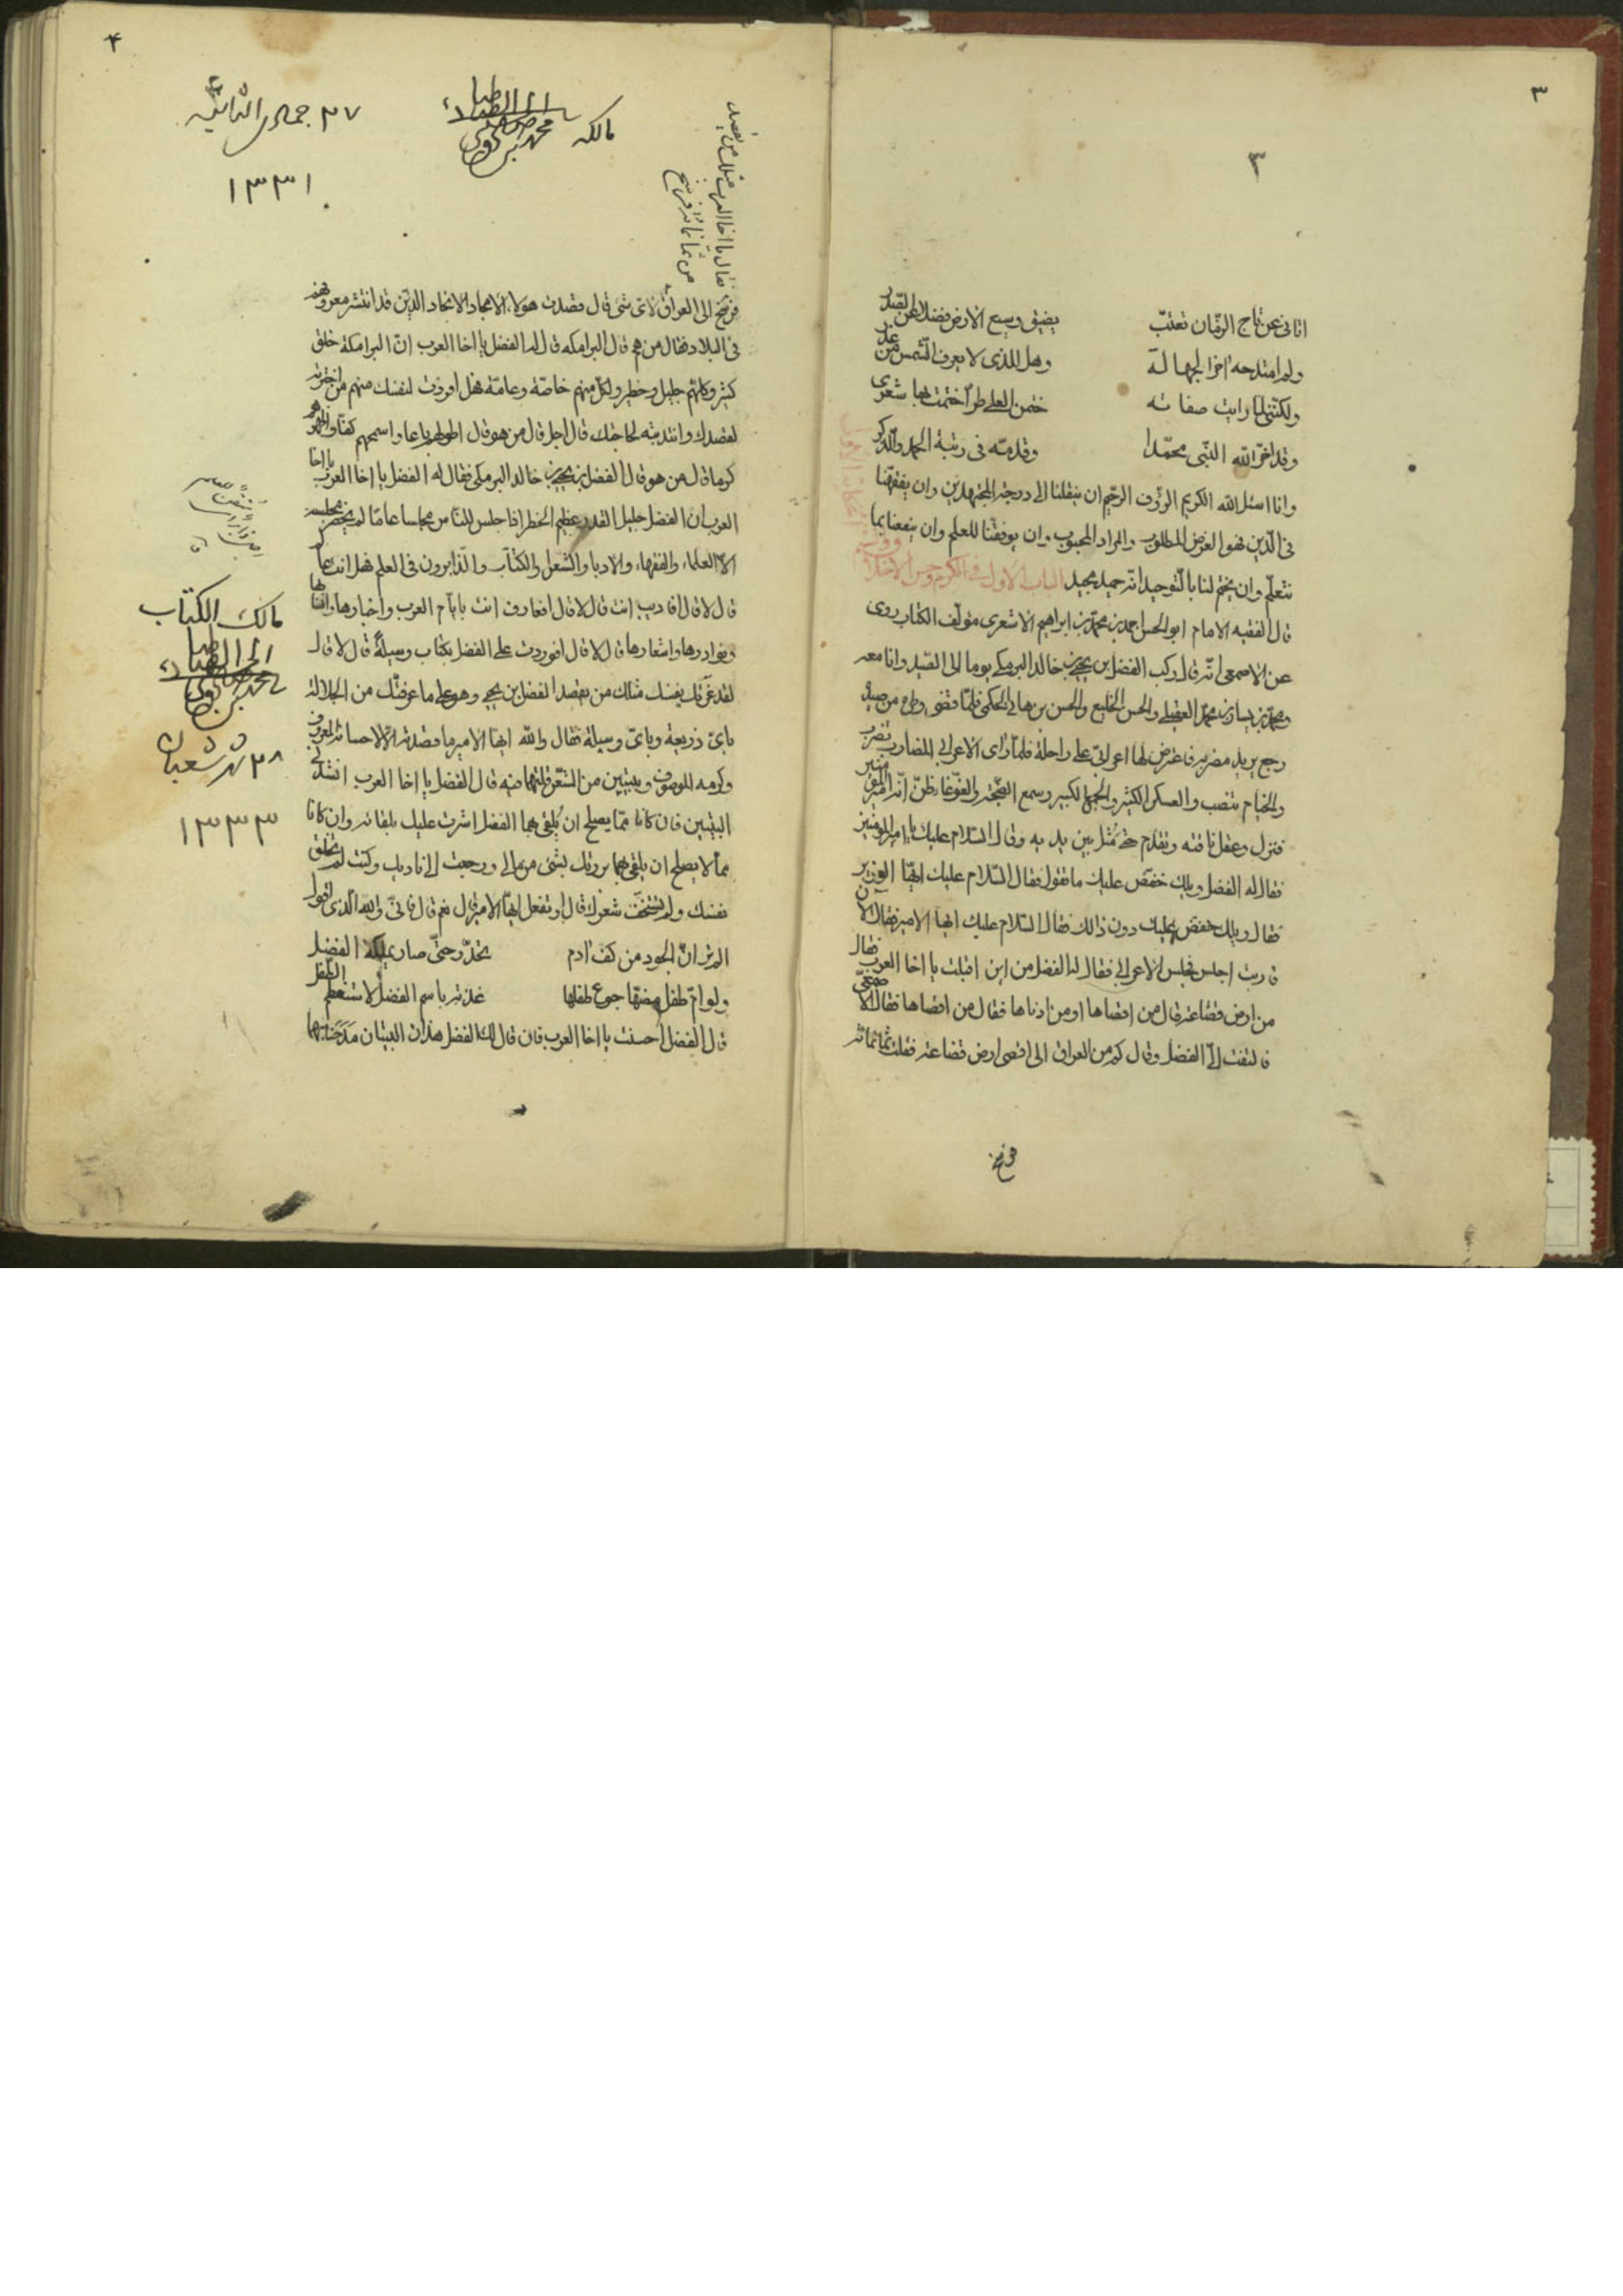 ٣
٣
اتانى عن تاج الزمان تعتّب يضيق وسيع الارض فضلا عن الصدر
ولم امتدحه اخر الجهالة وهل للذى لا يعرف الشمس من عذر
ولكننى لما رايت صفاته ختمن العلى طرا ختمت بها شعرى
وقد اخر الله النبى محمدا وقدمه فى رتبة الحمد والذكر
وانا اسئل الله الكريم الرؤف الرحيم ان ينقلنا الى درجة المجتهدين وان يفقهنا
فى الدين فهو الغرض المطلوب والمراد المحبوب وان يوفقنا للعلم وان ينفعنا بما
نتعلم وان يختم لنا بالتوحيد انه حميد مجيد الباب الاول فى الكرم وحسن الاخلاق
قال الفقيه الامام ابو الحسن احمد بن محمد بن ابراهيم الاشعرى مؤلف الكتاب روى
عن الاصمعى انه قال ركب الفضل بن يحيى بن خالد البرمكى يوما الى الصيد وانا معه
ومحمد بن يسار بن محمد العقيلى والحسن الخليع والحسن بن هانى الحكمى فلما قضى وطره من صيده
رجع يريد مضربه فاعترض لها اعرابى على راحلة فلما راى الاعرابى المضارب تضرب
والخيام تنصب والعسكر الكثير والجم الكبير وسمع الضجة والغوغا ظن انه امير المؤمنين
فنزل وعقل ناقته وتقدم حتى مثل بين يديه وقال السلام عليك يا امير المؤمنين
فقال له الفضل ويلك خفض عليك ما تقول فقال السلام عليك ايها الوزير
فقال ويلك خفض عليك دون ذالك فقال السلام عليك ايها الامير فقال الان
قاربت اجلس فجلس الاعرابى فقال له الفضل من اين اقبلت يا اخا العرب فقال
من ارض قضاعة قال من اقصاها او من ادناها فقال من اقصاها فقال الاصمعى
فالتفت الى الفضل وقال كم من العراق الى اقصى ارض قضاعة فقلت ثمانمائة
فرسخ
٤
٢٧ جمادى الثانية
١٣٣١
مالكه
فقال يا اخا العرب مثلك من يقصد
من ثمانمائة فرسخ
فرسخ الى العراق لاى شئ قال قصدت هؤلاء الامجاد الانجاد الذين قد انتشر معروفهم
فى البلاد فقال من هم قال البرامكه قال له الفضل يا اخا العرب ان البرامكة خلق
كثير وكلهم جليل وخطير ولكل منهم خاصة وعامة فهل افردت لنفسك منهم من اخترته
لقصدك وانتدبته لحاجتك قال اجل قال من هو قال اطولهم باعا واسمحهم كفا واظهرهم
كرما قال من هو قال الفضل بن يحيى بن خالد البرمكى فقال له الفضل يا اخا العرب
العرب ان الفضل جليل القدر عظيم الخطر اذا جلس للناس مجلسا عاما لم يحضر مجلسه
الا العلماء والفقهاء والادبا والشعرا والكتاب والذاكرون فى العلم فهل انت عالم
قال لا قال افاديب انت قال لا قال افعارف انت بايام العرب واخبارها وانسابها
ونوادرها واشعارها قال لا قال افوردت على الفضل بكتاب وسيلة قال لا قال
لقد غرتك نفسك مثلك من يقصد الفضل بن يحيى وهو على ما عرفتك من الجلالة
باى ذريعة وباى وسيلة فقال والله ايها الامير ما قصدته الا لاحسانه المعروف
وكرمه الموصوف وببيتين من الشعر قلتهما فيه قال الفضل يا اخا العرب انشدنى
البيتين فان كانا مما يصلح ان يلقى بهما الفضل اشرت عليك بلقائه وان كانا
مما لا يصلح ان يلقى بهما بررتك بشئ من مالى ورجعت الى ناديك وكنت لم تخلق
نفسك ولم تستخف شعرك قال اوتفعل ايها الامير قال نعم قال فانى والله الذى اقول
الم تر ان الجود من كف ادم تحدر حتى صار يملكه الفضل
ولو ام طفل مضها جوع طفلها غذته باسم الفضل لاستعظم الطفل
قال الفضل احسنت يا اخا العرب فان قال لك الفضل هذان البيتان مدحنا بهما
مالك الكتاب
٢٨ شهر شعبان
١٣٣٣